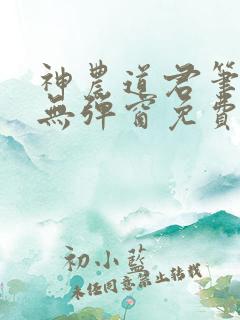 神農道君筆
無彈窗免費
初小藍
未經同意禁止轉載